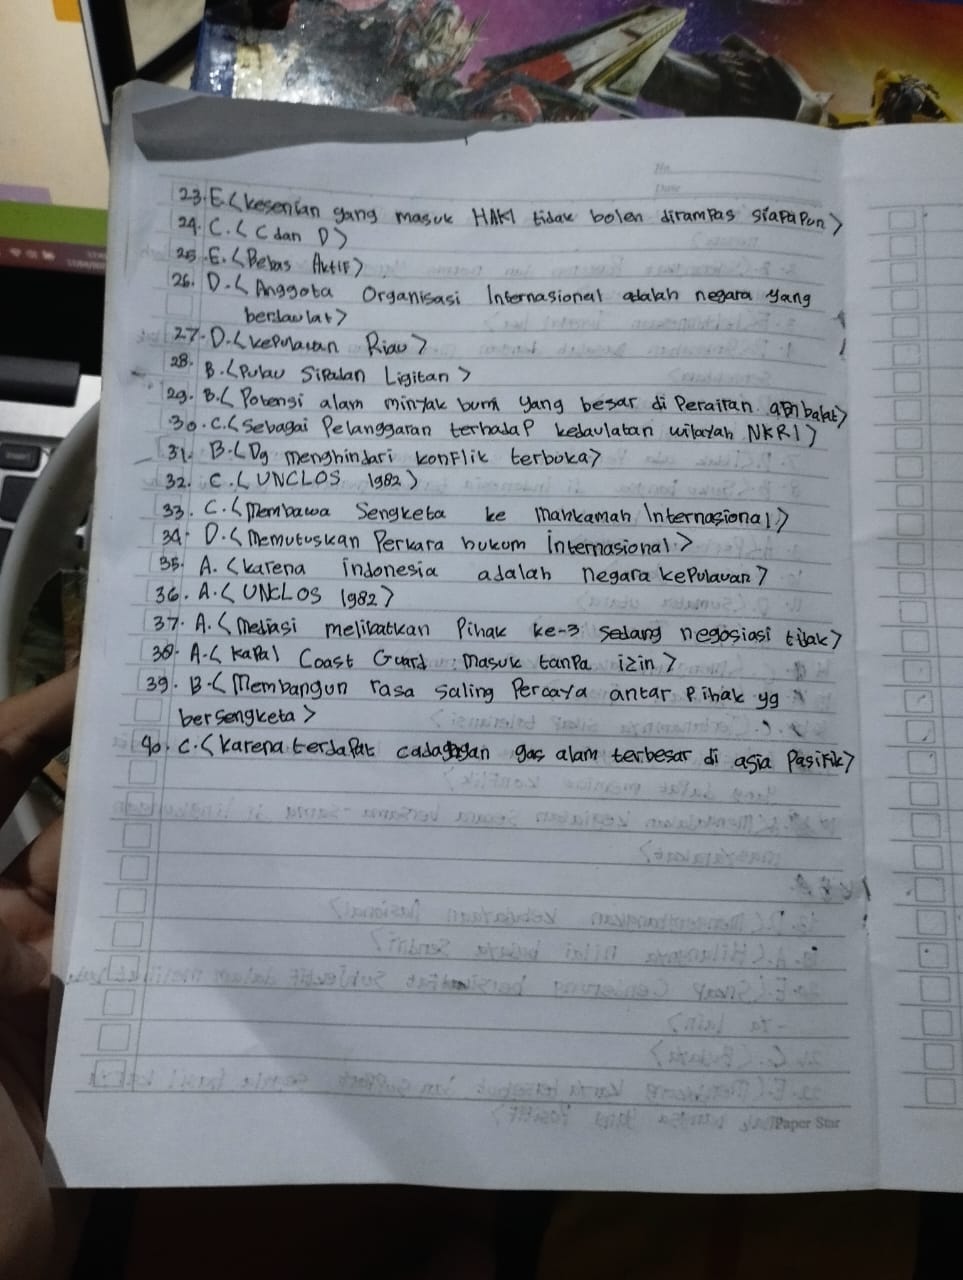 No
Date
23. E. < kesenian yang masuk HAKI tidak boleh dirampas siapapun >
24. C. < C dan D >
25. E. < Bebas Aktif >
26. D. < Anggota Organisasi Internasional adalah negara yang
berdaulat >
27. D. < kepulauan Riau >
28. B. < Pulau Sipadan Ligitan >
29. B. < Potensi alam minyak bumi yang besar di Perairan
30. C. < Sebagai Pelanggaran terhadap kedaulatan wilayah NKRI >
31. B. < Dg menghindari konflik terbuka >
32. C. < UNCLOS 1982 >
33. C. < Membawa Sengketa ke Mahkamah Internasional >
34. D. < Memutuskan Perkara hukum internasional >
35. A. < karena indonesia adalah negara kepulauan >
36. A. < UNCLOS 1982 >
37. A. < Mediasi melibatkan Pihak ke-3 sedang negosiasi tidak >
38. A. < Kapal Coast Guard masuk tanpa izin >
39. B. < Membangun rasa saling Percaya antar Pihak yg
bersengketa >
40. C. < Karena terdapat cadangan gas alam terbesar di asia Pasifik >
Paper Star